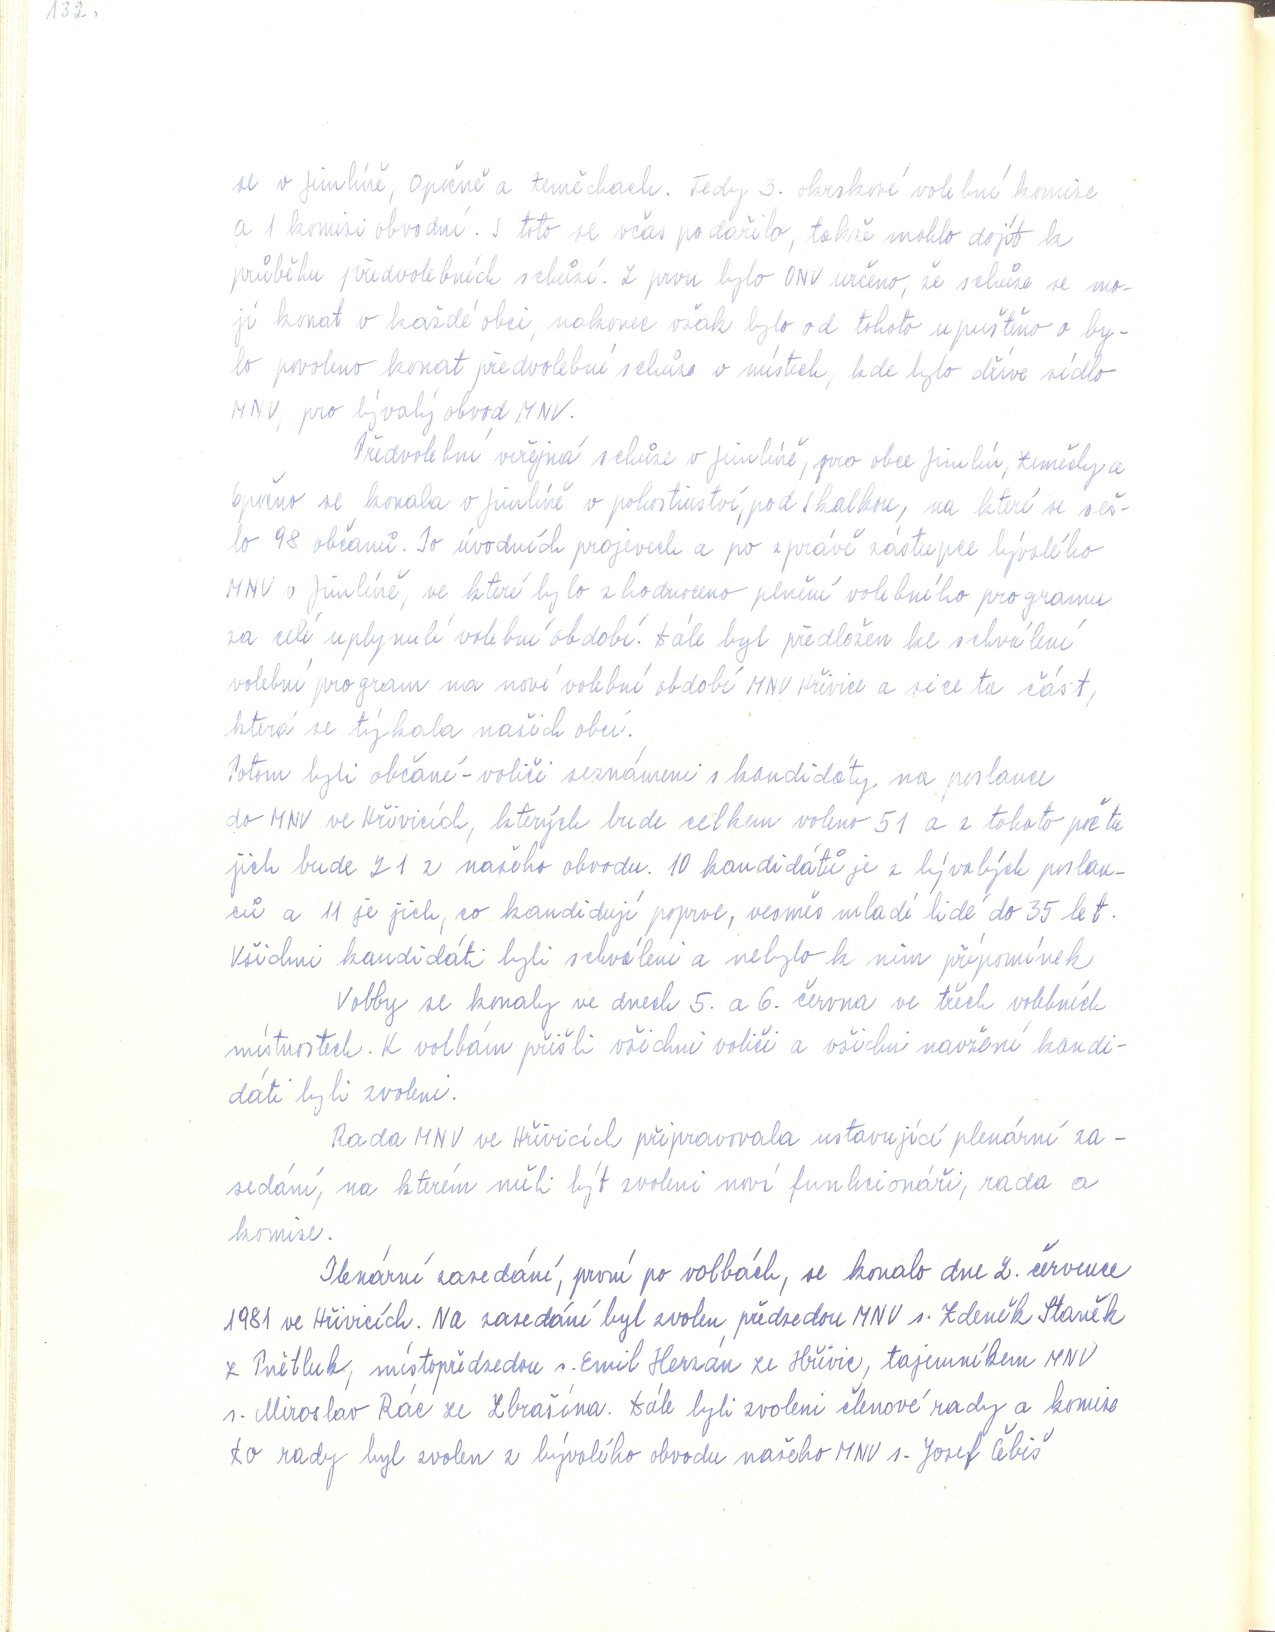 132.
se v Jimlíně, Opočně a Zeměchach. Tedy 3. okrskové volební komise
a 1 komisi obvodní. I toto se včas podařilo, takže mohlo dojít k
průběhu předvolebních schůzí. Z prvu bylo ONV určeno, že schůze se mo-
jí konat v každé obci, nakonec však bylo od tohoto upuštěno a by-
lo povoleno konat předvolební schůze v místech, kde bylo dříve sídlo
MNV, pro bývalý obvod MNV.
Předvolební veřejná schůze v Jimlíně, pro obce Jimlín, Zeměchy a
Opočno se konala v Jimlíně v pohostinství, pod Skalkou, na které se seš-
lo 98 občanů. Po úvodních projevech a po zprávě zástupce bývalého
MNV v Jimlíně, ve které bylo zhodnoceno plnění volebního programu
za celé uplynulé volební období. Dále byl předložen ke schválení
volební program na nové volební období MNV Hřivice a sice ta část,
která se týkala našich obcí.
Potom byli občané-voliči seznámeni s kandidáty na poslance
do MNV ve Hřivicích, kterých bude celkem voleno 51 a z tohoto počtu
jich bude 21 z našeho obvodu. 10 kandidátů je z bývalých poslan-
ců a 11 je jich, co kandidují poprve, vesměs mladé lidé do 35 let.
Všichni kandidáti byli schváleni a nebylo k nim připomínek
Volby se konaly ve dnech 5. a 6. června ve třech volebních
místnostech. K volbám přišli všichni voliči a všichni navržení kandi-
dáti byli zvoleni.
Rada MNV ve Hřivicích připravovala ustavující plenární za-
sedání, na kterém měli být zvoleni noví funkcionáři, rada a
komise.
Plenární zasedání, první po volbách, se konalo dne 2. července
1981 ve Hřivicích. Na zasedání byl zvolen předsedou MNV s. Zdeněk Staněk
z Pnětluk, místopředsedou s. Emil Herzán ze Hřivic, tajemníkem MNV
s. Miroslav Rác ze Zbrašína. Dále byli zvoleni členové rady a komise
Do rady byl zvolen z bývalého obvodu našeho MNV s. Josef Čebiš